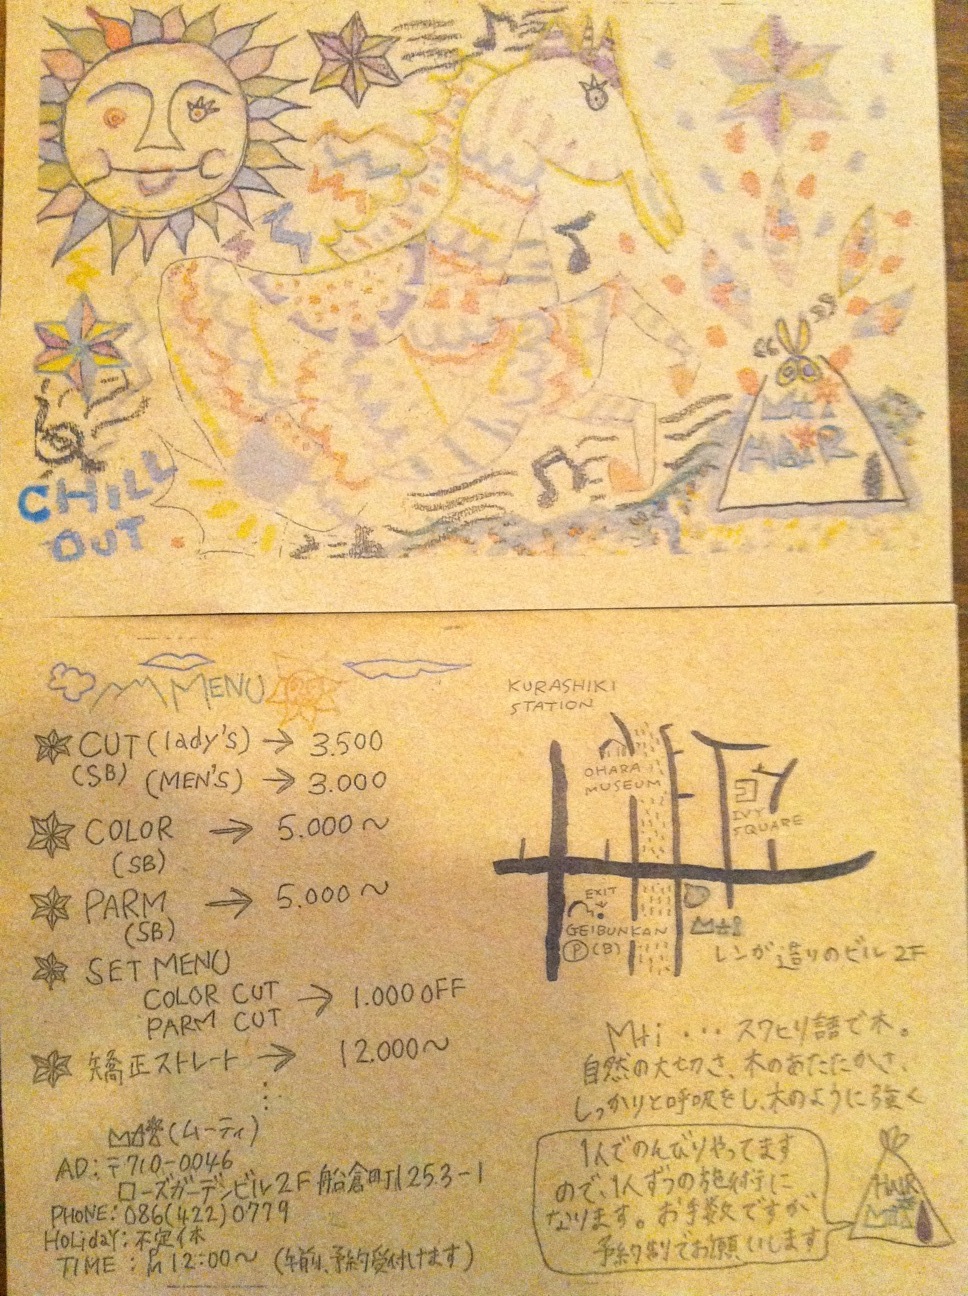 CHILL
OUT
HAIR
MENU
CUT (lady's) → 3.500
(SB) (MEN'S) → 3.000
COLOR → 5.000〜
(SB)
PARM → 5.000〜
(SB)
SET MENU
COLOR CUT → 1.000 OFF
PARM CUT
矯正ストレート → 12.000〜
(ムーティ)
AD:〒710-0046
ローズガーデンビル2F 船倉町1253-1
PHONE:086(422)0779
HoLidaY:不定休
TIME: 12:00〜 (午前、予約受付けます)
KURASHIKI
STATION
OHARA
MUSEUM
IVY
SQUARE
EXIT
GEIBUNKAN
Ⓟ(B)
レンガ造りのビル2F
Mti ・・・ スワヒリ語で木。
自然の大切さ、木のあたたかさ、
しっかりと呼吸をし、木のように強く
1人でのんびりやってます
ので、1人ずつの施術に
なります。お手数ですが
予約制でお願いします
HAIR